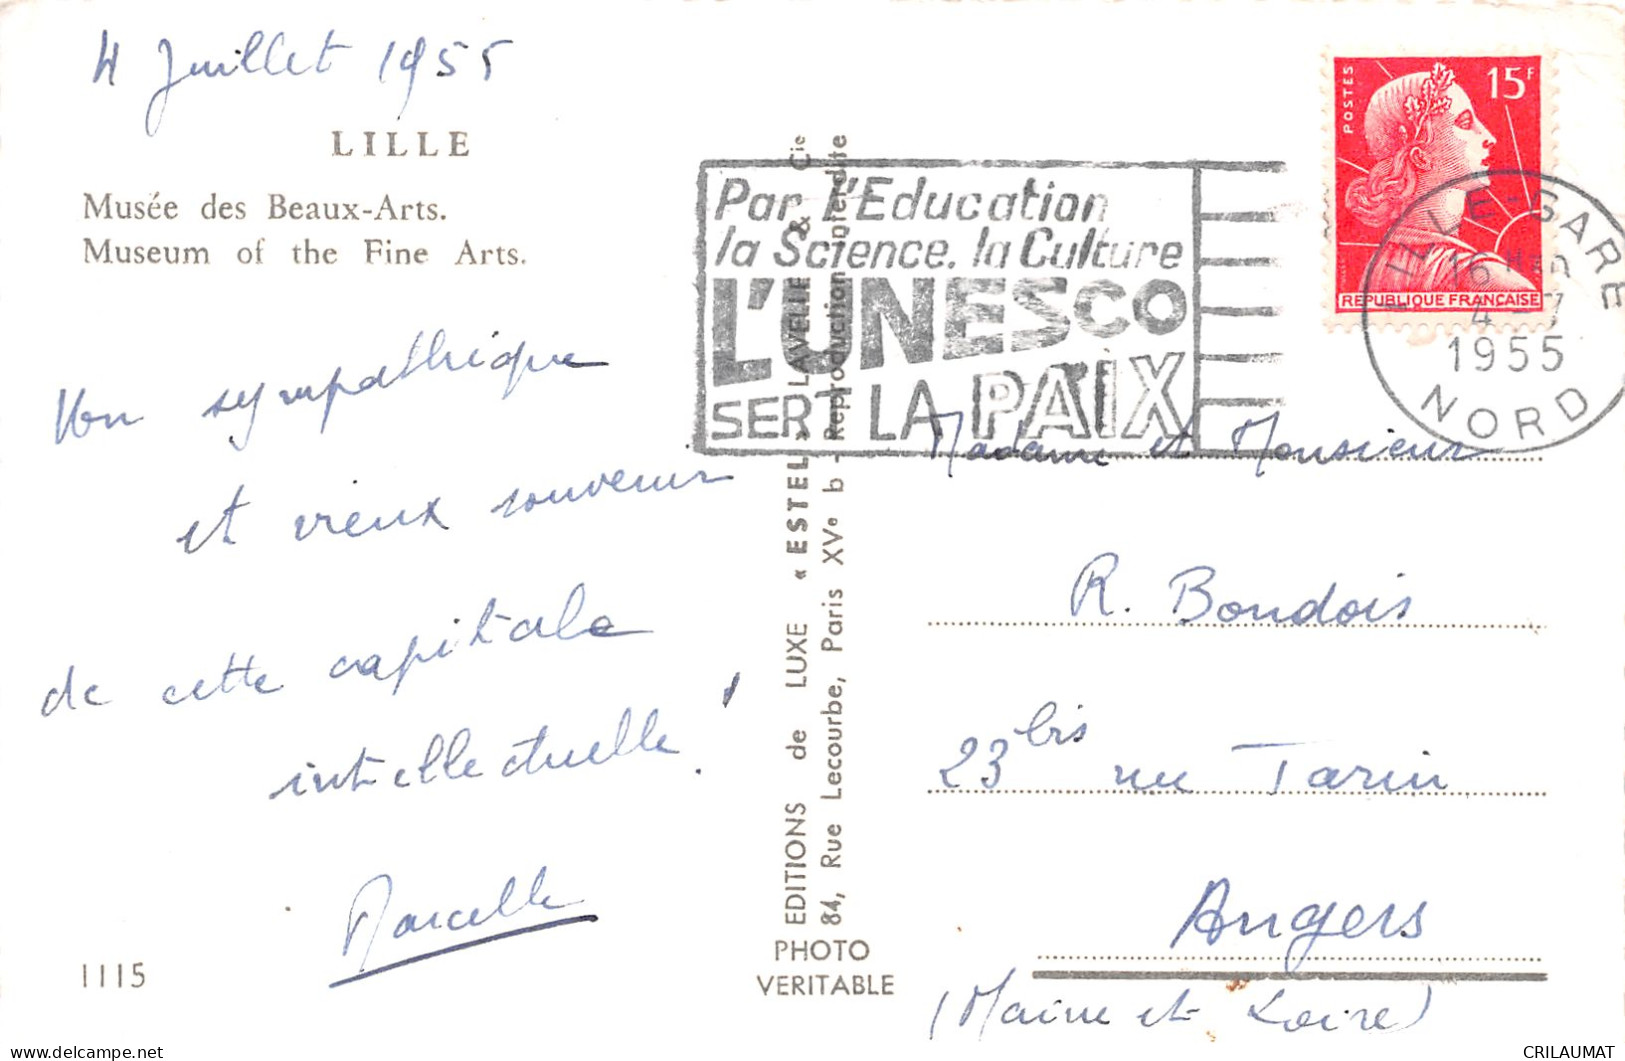 4 Juillet 1955
LILLE
Musée des Beaux-Arts.
Museum of the Fine Arts.
Un sympathique
et vieux souvenir
de cette capitale
intellectuelle !
Marcelle
1115
EDITIONS de LUXE « ESTEL » LAVELLE & Cie
84, Rue Lecourbe, Paris XVe b - Reproduction interdite
PHOTO
VERITABLE
Par l'Education
la Science, la Culture
L'UNESCO
SERT LA PAIX
POSTES
15F
REPUBLIQUE FRANÇAISE
LILLE-GARE
16H
4-7
1955
NORD
Madame et Monsieur
R. Boudois
23 bis rue Tarin
Angers
(Maine et Loire)
CRILAUMAT
delcampe.net